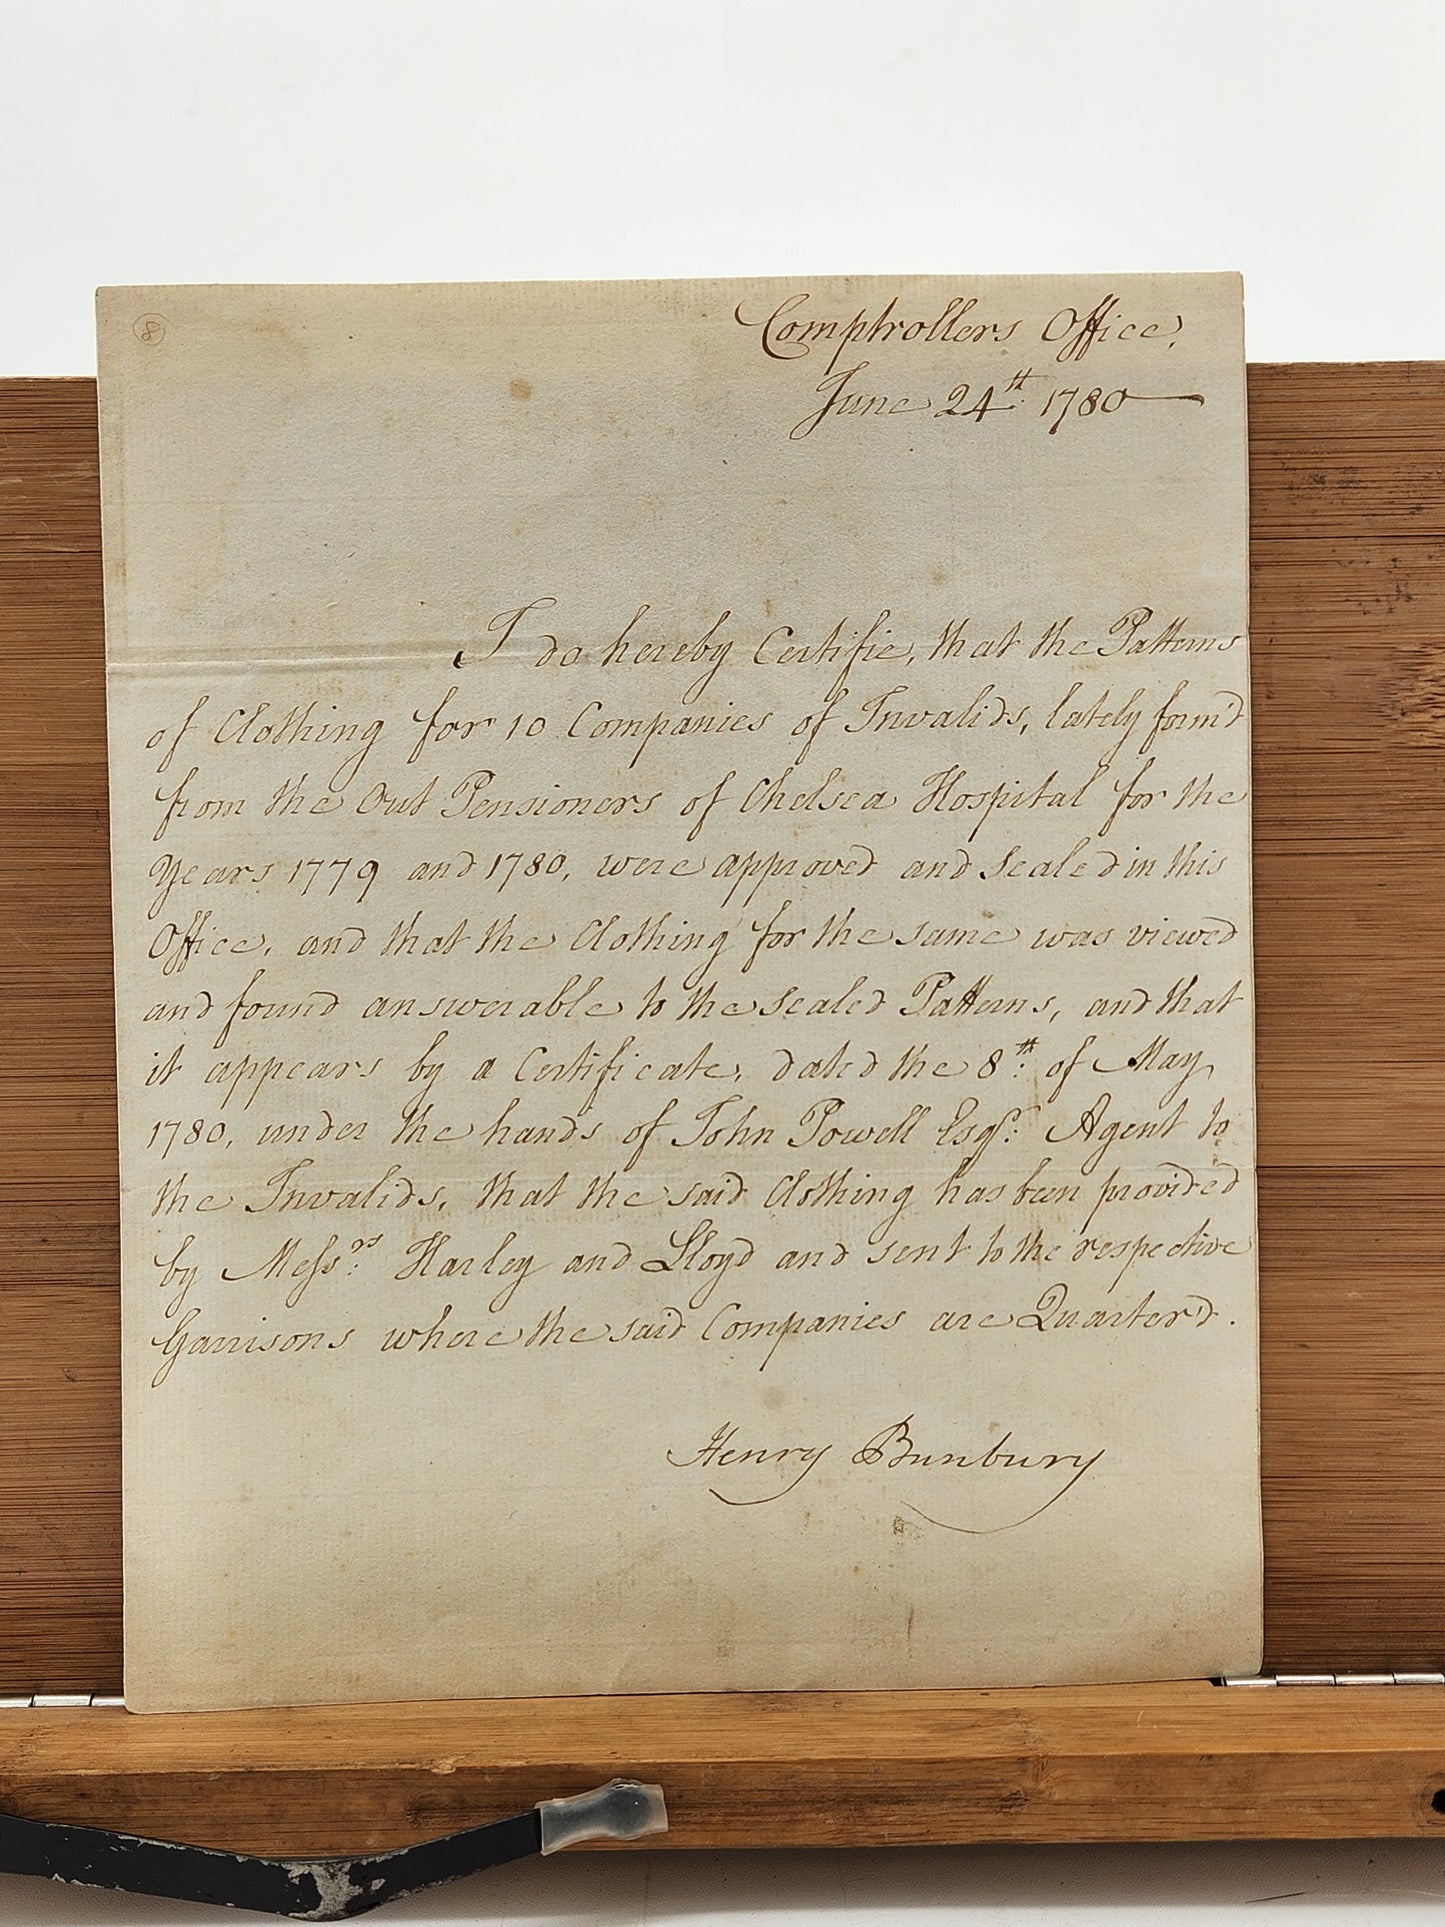 8
Comptrollers Office,
June 24th. 1780
I do hereby Certifie, that the Patterns
of Clothing for 10 Companies of Invalids, lately form'd
from the Out Pensioners of Chelsea Hospital for the
Years 1779 and 1780, were approved and Sealed in this
Office, and that the Clothing for the same was viewed
and found answerable to the Sealed Patterns, and that
it appears by a Certificate, dated the 8th. of May
1780, under the hands of John Powell Esqr. Agent to
the Invalids, that the said Clothing has been provided
by Messrs. Harley and Lloyd and sent to the respective
Garrisons where the said Companies are Quarter'd.
Henry Bunbury